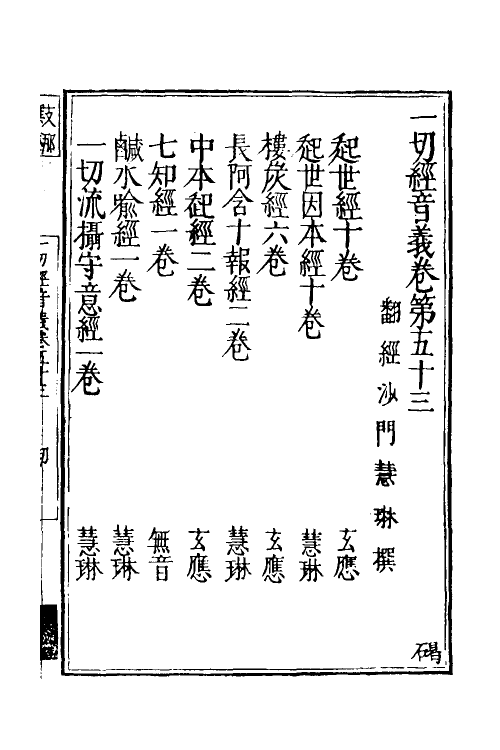 一切經音義卷第五十三
翻經沙門慧琳撰
起世經十卷 玄應
起世因本經十卷 慧琳
樓炭經六卷 玄應
長阿含十報經二卷 慧琳
中本起經二卷 玄應
七知經一卷 無音
鹹水喻經一卷 慧琳
一切流攝守意經一卷 慧琳
碣
一切經音義卷五十三